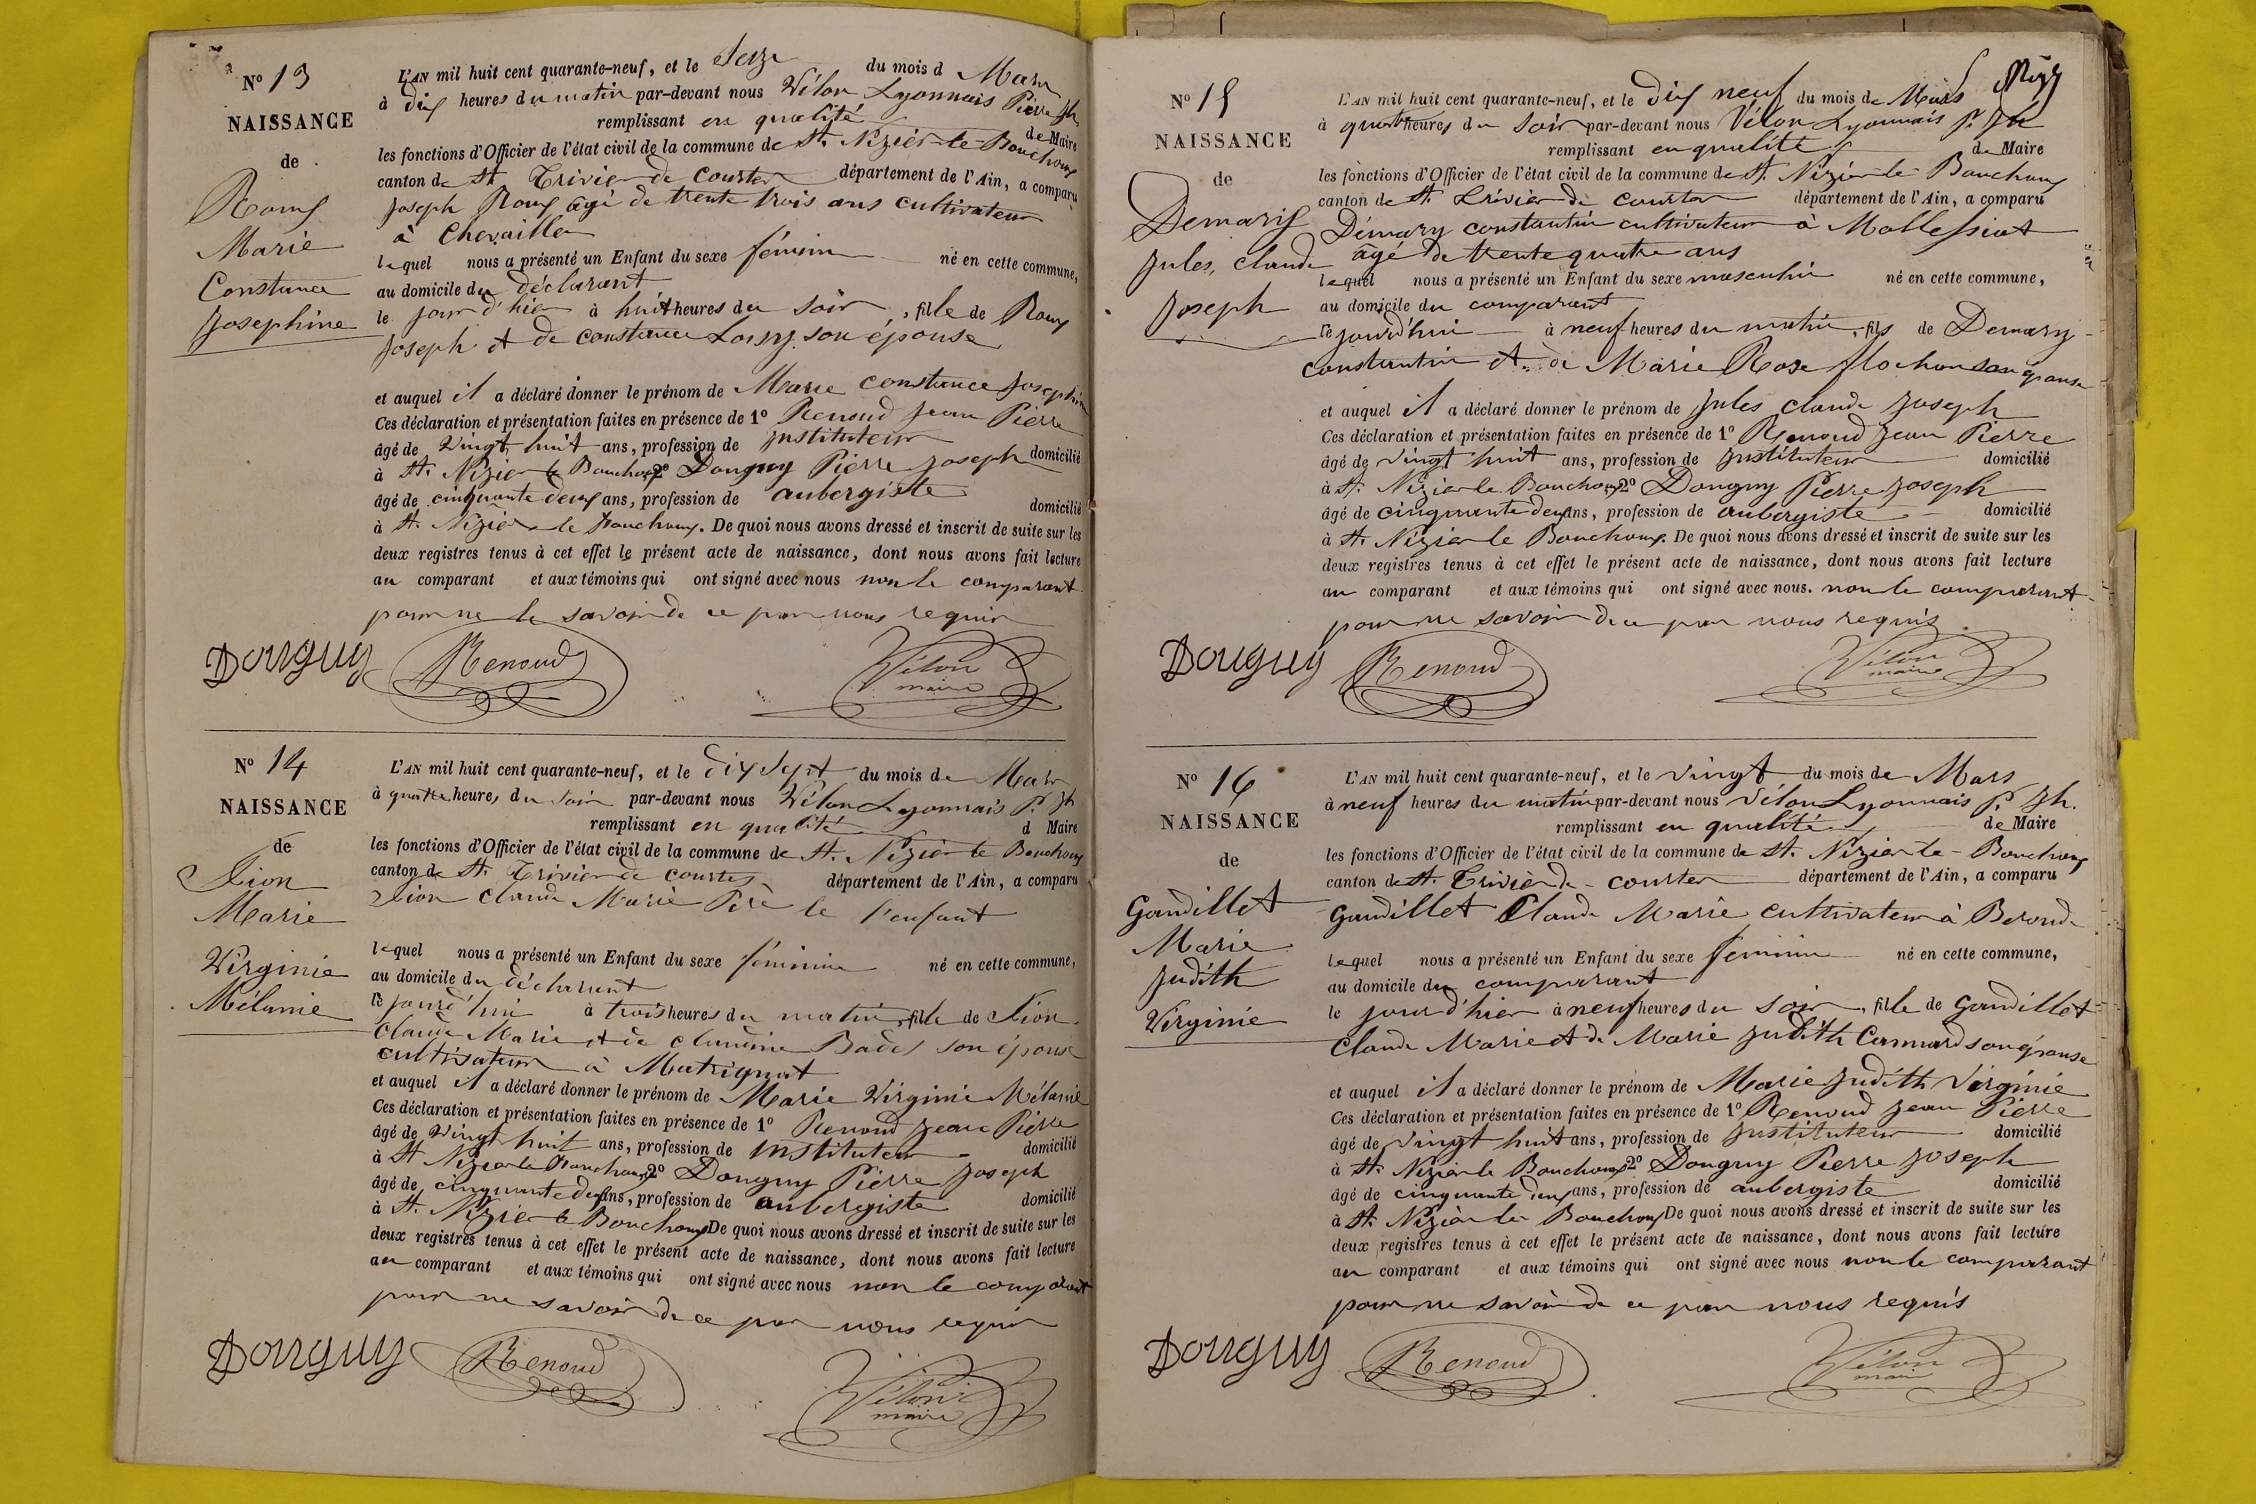 N° 13
NAISSANCE
de
Roux
Marie
Constance
Josephine
L'AN mil huit cent quarante-neuf, et le Seize du mois d Mars
à dix heures du matin par-devant nous Vélon Lyonnais Pierre Jh
remplissant en qualité de Maire
les fonctions d'Officier de l'état civil de la commune de St. Nizier-le-Bouchoux
canton de St Trivier de Courtes département de l'Ain, a comparu
Joseph Roux âgé de trente trois ans cultivateur
à Chevailler
lequel nous a présenté un Enfant du sexe féminin né en cette commune,
au domicile du déclarant
le jour d'hier à huit heures du soir, fille de Roux
Joseph et de constance Loisy son épouse
et auquel il a déclaré donner le prénom de Marie constance Josephine
Ces déclaration et présentation faites en présence de 1° Renoud Jean Pierre
âgé de Vingt huit ans, profession de Instituteur domicilié
à St. Nizier le Bouchoux 2° Donguy Pierre Joseph
âgé de cinquante deux ans, profession de aubergiste domicilié
à St. Nizier le Bouchoux. De quoi nous avons dressé et inscrit de suite sur les
deux registres tenus à cet effet le présent acte de naissance, dont nous avons fait lecture
au comparant et aux témoins qui ont signé avec nous non le comparant
pour ne le savoir de ce par nous requis
Donguy Renoud Vélon
maire
N° 14
NAISSANCE
de
Lion
Marie
Virginie
Mélanie
L'AN mil huit cent quarante-neuf, et le dix sept du mois de Mars
à quatre heures du soir par-devant nous Vélon Lyonnais P. Jh
remplissant en qualité d Maire
les fonctions d'Officier de l'état civil de la commune de St. Nizier le Bouchoux
canton de St. Trivier de Courtes département de l'Ain, a comparu
Lion Claude Marie Père de l'enfant
lequel nous a présenté un Enfant du sexe féminin né en cette commune,
au domicile du déclarant
le jourd'hui à trois heures du matin, fille de Lion
Claude Marie et de claudine Badel son épouse
cultivateur à Matrignat
et auquel il a déclaré donner le prénom de Marie Virginie Mélanie
Ces déclaration et présentation faites en présence de 1° Renoud Jean Pierre
âgé de Vingt huit ans, profession de Instituteur domicilié
à St Nizier le Bouchoux 2° Donguy Pierre Joseph
âgé de cinquante deux ans, profession de aubergiste domicilié
à St. Nizier le Bouchoux De quoi nous avons dressé et inscrit de suite sur les
deux registres tenus à cet effet le présent acte de naissance, dont nous avons fait lecture
au comparant et aux témoins qui ont signé avec nous non le comparant
pour ne savoir de ce par nous requis
Donguy Renoud Vélon
maire
N° 15
NAISSANCE
de
Demarix
Jules, Claude
Joseph
L'AN mil huit cent quarante-neuf, et le dix neuf du mois de Mars
à quatre heures du soir par-devant nous Vélon Lyonnais P. Jh
remplissant en qualité de Maire
les fonctions d'Officier de l'état civil de la commune de St. Nizier le Bouchoux
canton de St. Trivier de courtes département de l'Ain, a comparu
Démary constantin cultivateur à Mollessiat
âgé de trente quatre ans
lequel nous a présenté un Enfant du sexe masculin né en cette commune,
au domicile du comparant
le jourd'hui à neuf heures du matin, fils de Demary
constantin et de Marie Rose Flochon son épouse
et auquel il a déclaré donner le prénom de Jules claude Joseph
Ces déclaration et présentation faites en présence de 1° Renoud Jean Pierre
âgé de vingt huit ans, profession de Instituteur domicilié
à St. Nizier le Bouchoux 2° Donguy Pierre Joseph
âgé de cinquante deux ans, profession de aubergiste domicilié
à St. Nizier le Bouchoux. De quoi nous avons dressé et inscrit de suite sur les
deux registres tenus à cet effet le présent acte de naissance, dont nous avons fait lecture
au comparant et aux témoins qui ont signé avec nous. non le comparant
pour ne savoir de ce par nous requis
Donguy Renoud Vélon
maire
N° 16
NAISSANCE
de
Gandillet
Marie
Judith
Virginie
L'AN mil huit cent quarante-neuf, et le vingt du mois de Mars
à neuf heures du matin par-devant nous Vélon Lyonnais P. Jh.
remplissant en qualité de Maire
les fonctions d'Officier de l'état civil de la commune de St. Nizier le Bouchoux
canton de St. Trivier de courtes département de l'Ain, a comparu
Gandillet Claude Marie cultivateur à Beroude
lequel nous a présenté un Enfant du sexe féminin né en cette commune,
au domicile du comparant
le jour d'hier à neuf heures du soir, fille de Gandillet
Claude Marie et de Marie Judith Cannard son épouse
et auquel il a déclaré donner le prénom de Marie Judith Virginie
Ces déclaration et présentation faites en présence de 1° Renoud Jean Pierre
âgé de vingt huit ans, profession de Instituteur domicilié
à St. Nizier le Bouchoux 2° Donguy Pierre Joseph
âgé de cinquante deux ans, profession de aubergiste domicilié
à St. Nizier le Bouchoux De quoi nous avons dressé et inscrit de suite sur les
deux registres tenus à cet effet le présent acte de naissance, dont nous avons fait lecture
au comparant et aux témoins qui ont signé avec nous non le comparant
pour ne savoir de ce par nous requis
Donguy Renoud Vélon
maire